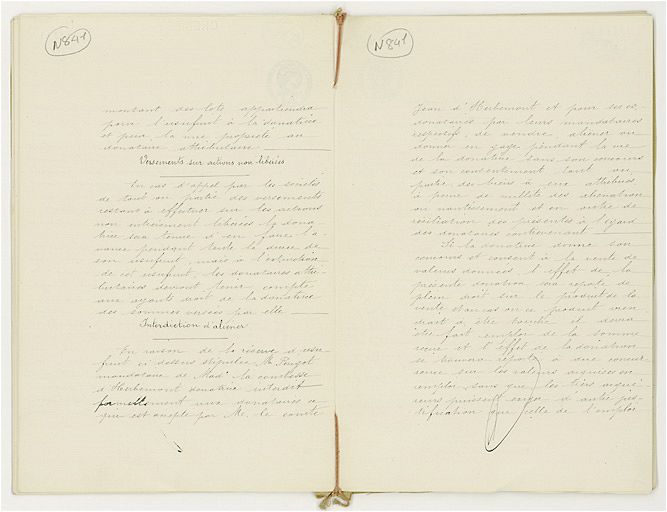 N841
montant des lots appartiendra
pour l'usufruit à la donatrice
et pour la nue propriété au
donataire attributaire
Versements sur actions non libérées
En cas d'appel par les sociétés
de tout ou partie des versements
restant à effectuer sur les actions
non entièrement libérées la dona
trice sera tenue d'en faire l'a
vance pendant toute la durée de
son usufruit, mais à l'extinction
de cet usufruit, les donataires attri
butaires devront tenir compte
aux ayants droit de la donatrice
des sommes versées par elle
Interdiction d'aliéner
En raison de la réserve d'usu
fruit ci dessus stipulée, M. Pougot
mandataire de Made la comtesse
d'Herbemont donatrice interdit
formellement aux donataires ce
qui est accepté par Mr. le comte
N841
Jean d'Herbemont et pour ses co-
donataires par leurs mandataires
respectifs, de vendre, aliéner ou
donner en gage pendant la vie
de la donatrice sans son concours
et son consentement tout ou
partie des biens à eux attribués
à peine de nullité des aliénation
ou nantissement et en outre de
résiliation des présentes à l'égard
des donataires contrevenant
Si la donatrice donne son
concours et consent à la vente de
valeurs données, l'effet de la
présente donation sera reporté de
plein droit sur le produit de la
vente et au cas où ce produit vien
drait à être touché il devra
être fait emploi de la somme
reçue et l'effet de la donation
se trouvera reporté à due concur
rence sur les valeurs acquises en
remploi, sans que les tiers acqué
reurs puissent exiger d'autre jus
tification que celle de l'emploi